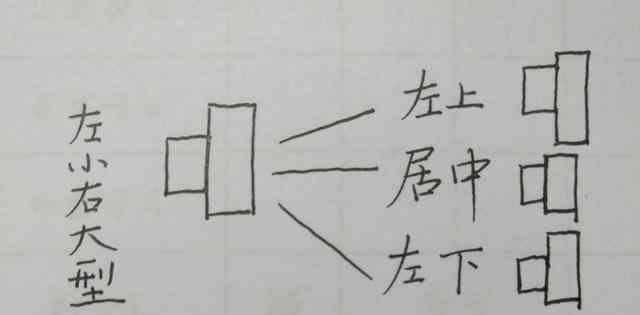 左小右大型
左上
居中
左下